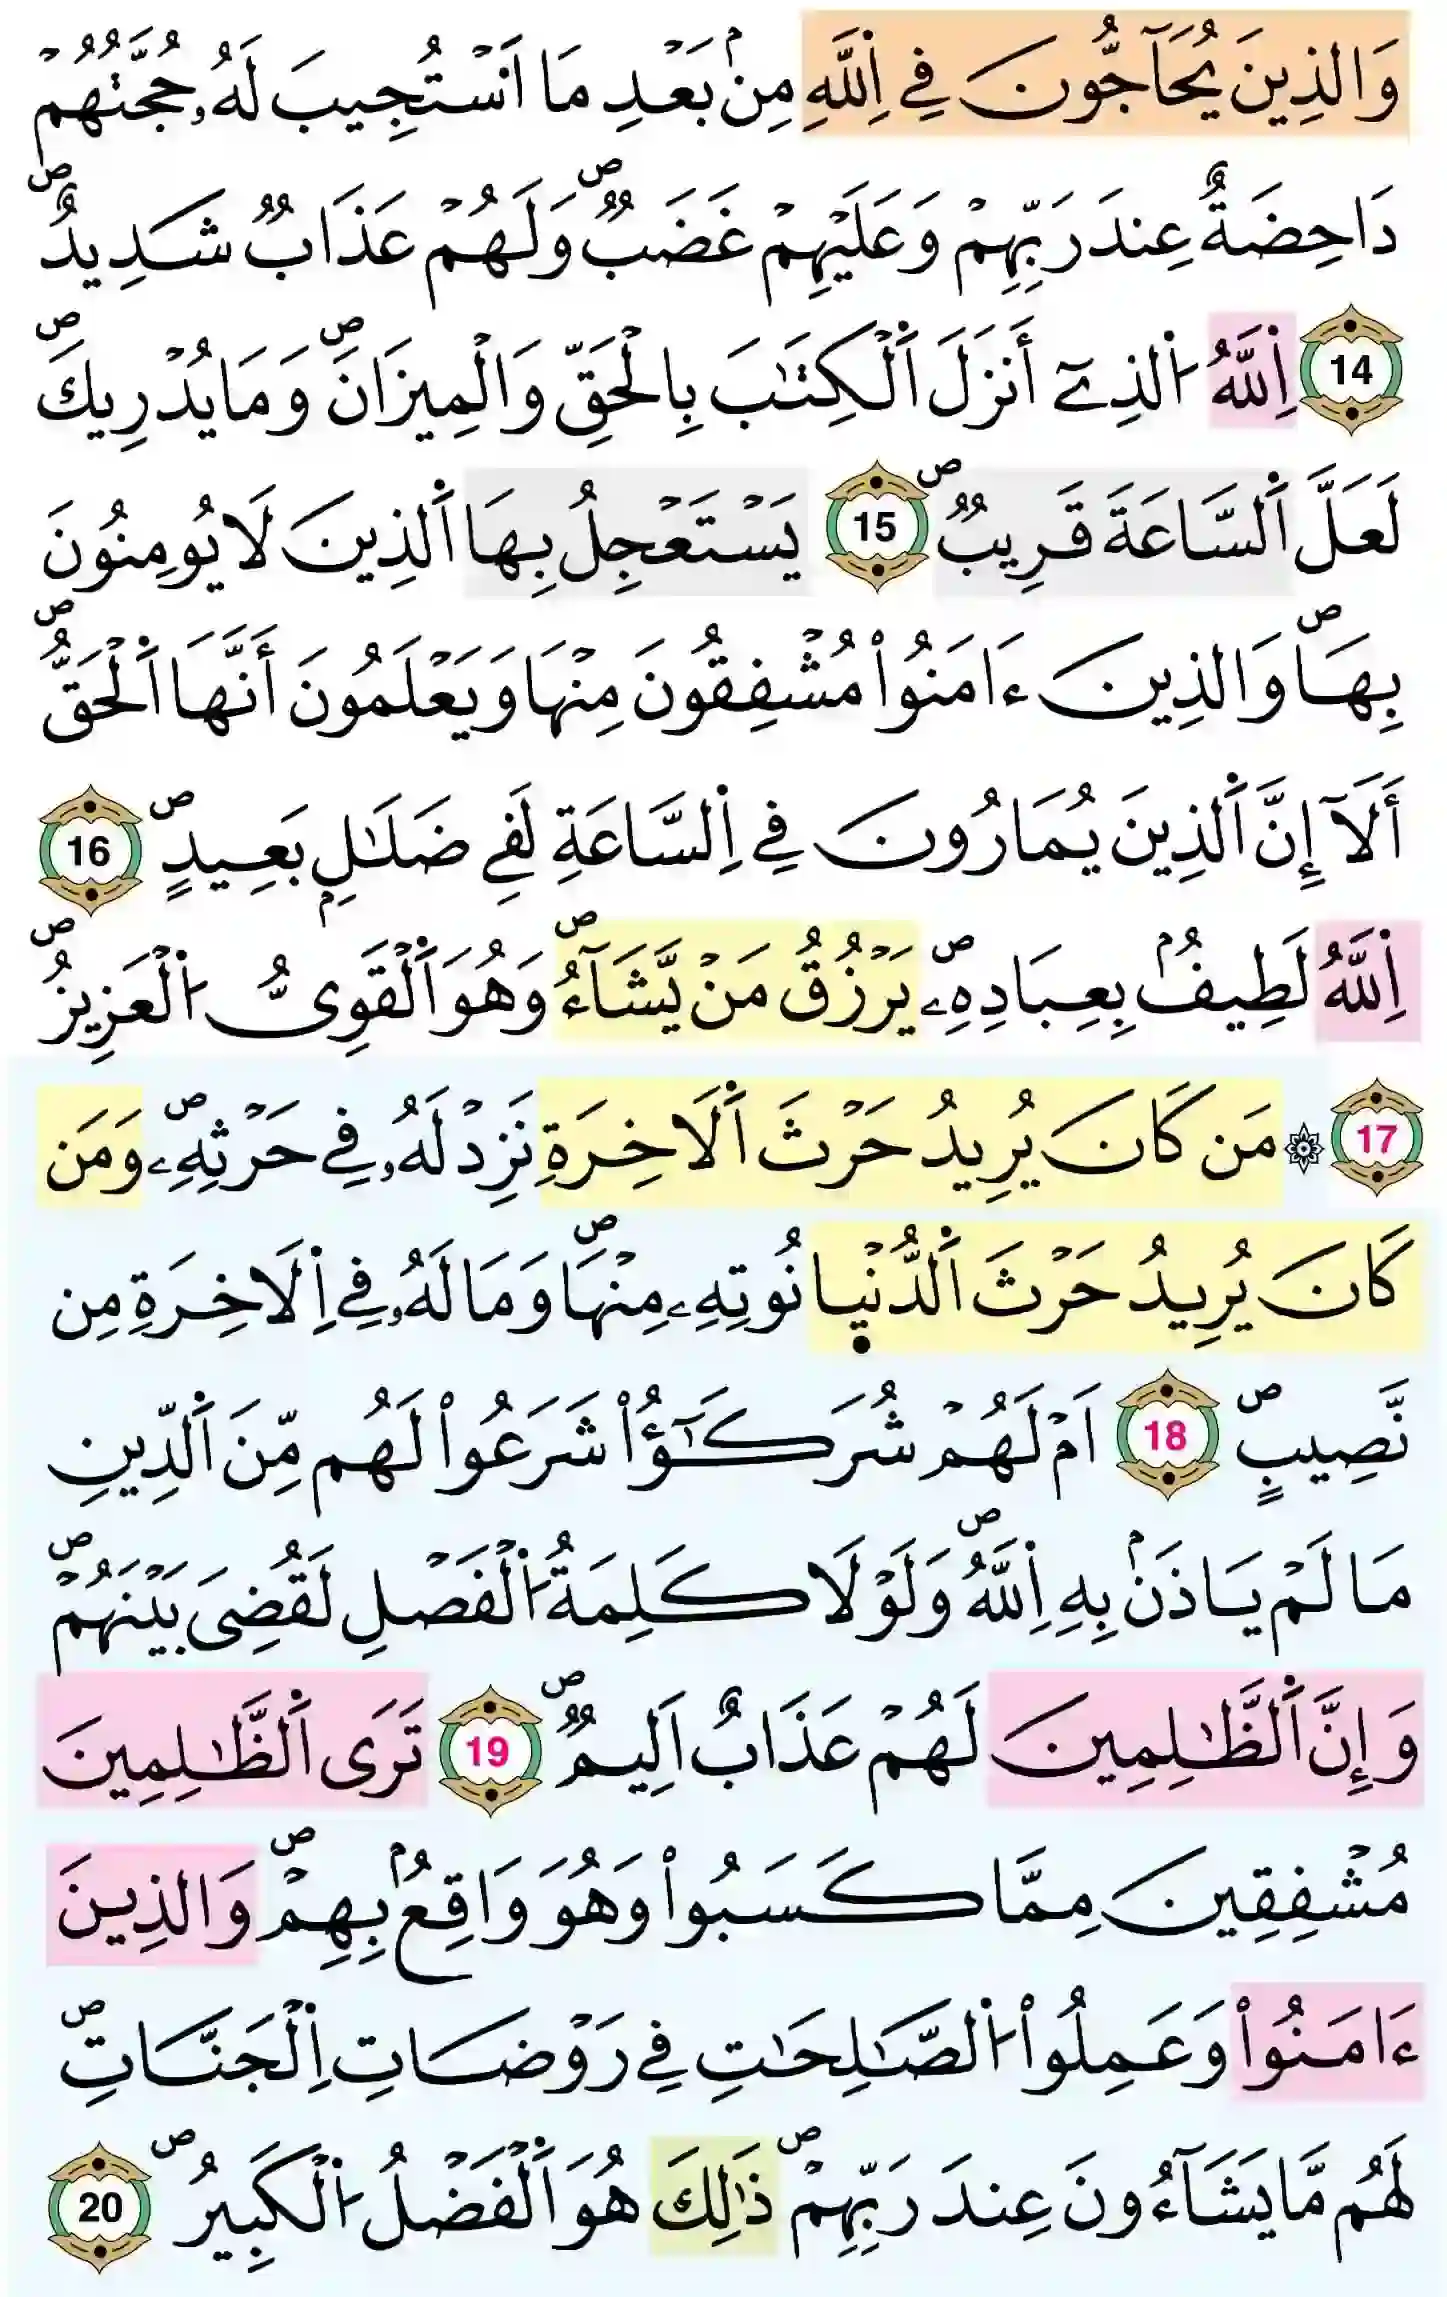 وَالذِينَ يُحَآجُّونَ فِے اِ۬للَّهِ مِنۢ بَعْدِ مَا اَ۟سْتُجِيبَ لَهُۥ حُجَّتُهُمْ
دَاحِضَةٌ عِندَ رَبِّهِمْ وَعَلَيْهِمْ غَضَبٞ وَلَهُمْ عَذَابٞ شَدِيدٌۖ
14 اِ۬للَّهُ اُ۬لذِےٓ أَنزَلَ اَ۬لْكِتَٰبَ بِالْحَقِّ وَالْمِيزَانَۖ وَمَا يُدْرِيكَۖ
لَعَلَّ اَ۬لسَّاعَةَ قَرِيبٞۖ 15 يَسْتَعْجِلُ بِهَا اَ۬لذِينَ لَا يُومِنُونَ
بِهَاۖ وَالذِينَ ءَامَنُواْ مُشْفِقُونَ مِنْهَا وَيَعْلَمُونَ أَنَّهَا اَ۬لْحَقُّۖ
أَلَآ إِنَّ اَ۬لذِينَ يُمَارُونَ فِے اِ۬لسَّاعَةِ لَفِے ضَلَٰلِۢ بَعِيدٍۖ 16
اِ۬للَّهُ لَطِيفُۢ بِعِبَادِهِۦۖ يَرْزُقُ مَنْ يَّشَآءُۖ وَهُوَ اَ۬لْقَوِيُّ اُ۬لْعَزِيزُۖ
17 ۞ مَن كَانَ يُرِيدُ حَرْثَ اَ۬لَاخِرَةِ نَزِدْ لَهُۥ فِے حَرْثِهِۦۖ وَمَن
كَانَ يُرِيدُ حَرْثَ اَ۬لدُّنْي۪ا نُوتِهِۦ مِنْهَاۖ وَمَا لَهُۥ فِے اِ۬لَاخِرَةِ مِن
نَّصِيبٍۖ 18 اَمْ لَهُمْ شُرَكَٰٓؤُاْ شَرَعُواْ لَهُم مِّنَ اَ۬لدِّينِ
مَا لَمْ يَاذَنۢ بِهِ اِ۬للَّهُۖ وَلَوْلَا كَلِمَةُ اُ۬لْفَصْلِ لَقُضِيَ بَيْنَهُمْۖ
وَإِنَّ اَ۬لظَّٰلِمِينَ لَهُمْ عَذَابٌ اَلِيمٞۖ 19 تَرَى اَ۬لظَّٰلِمِينَ
مُشْفِقِينَ مِمَّا كَسَبُواْ وَهُوَ وَاقِعُۢ بِهِمْۖ وَالذِينَ
ءَامَنُواْ وَعَمِلُواْ اُ۬لصَّٰلِحَٰتِ فِے رَوْضَاتِ اِ۬لْجَنَّاتِۖ
لَهُم مَّا يَشَآءُونَ عِندَ رَبِّهِمْۖ ذَٰلِكَ هُوَ اَ۬لْفَضْلُ اُ۬لْكَبِيرُۖ 20